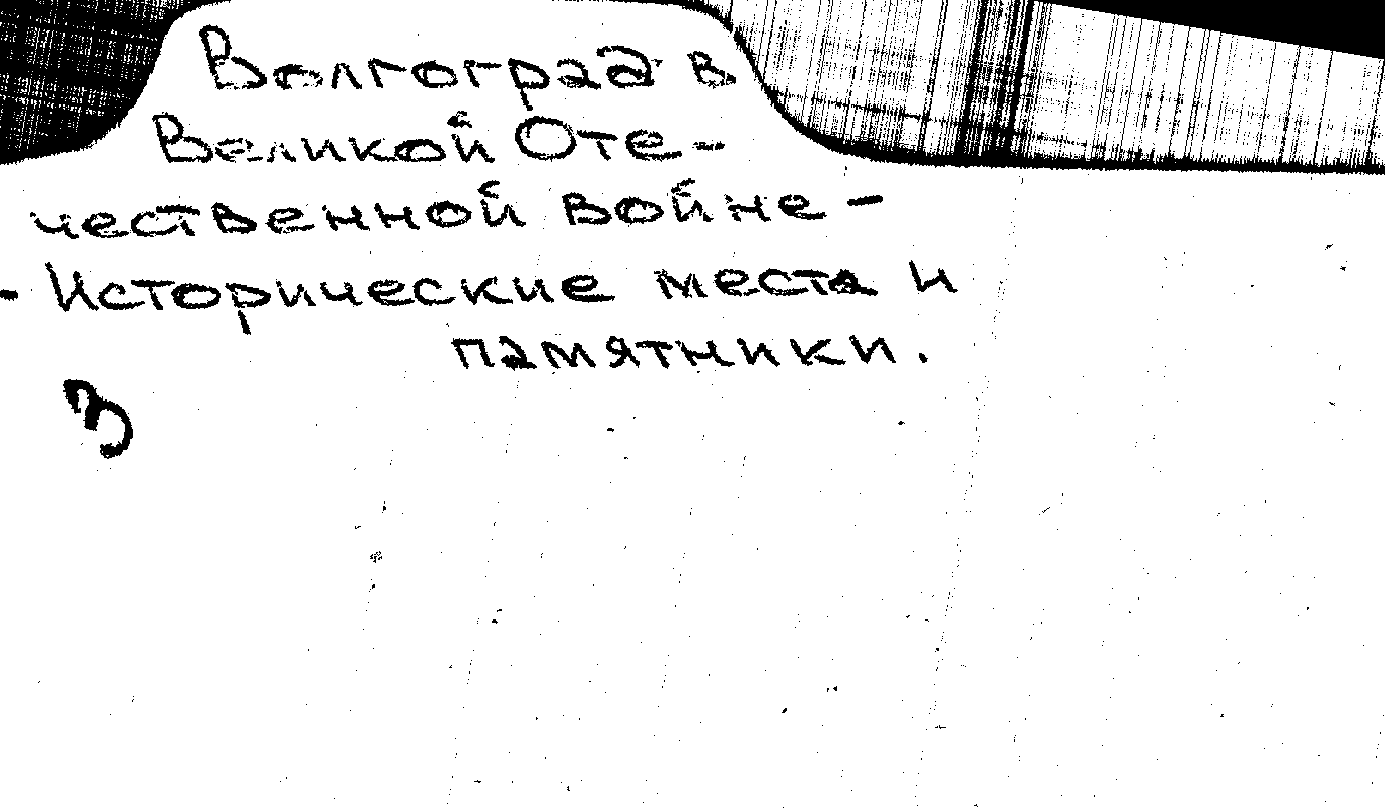 Волгоград в
Великой Оте-
чественной войне -
- Исторические места и
памятники.
В